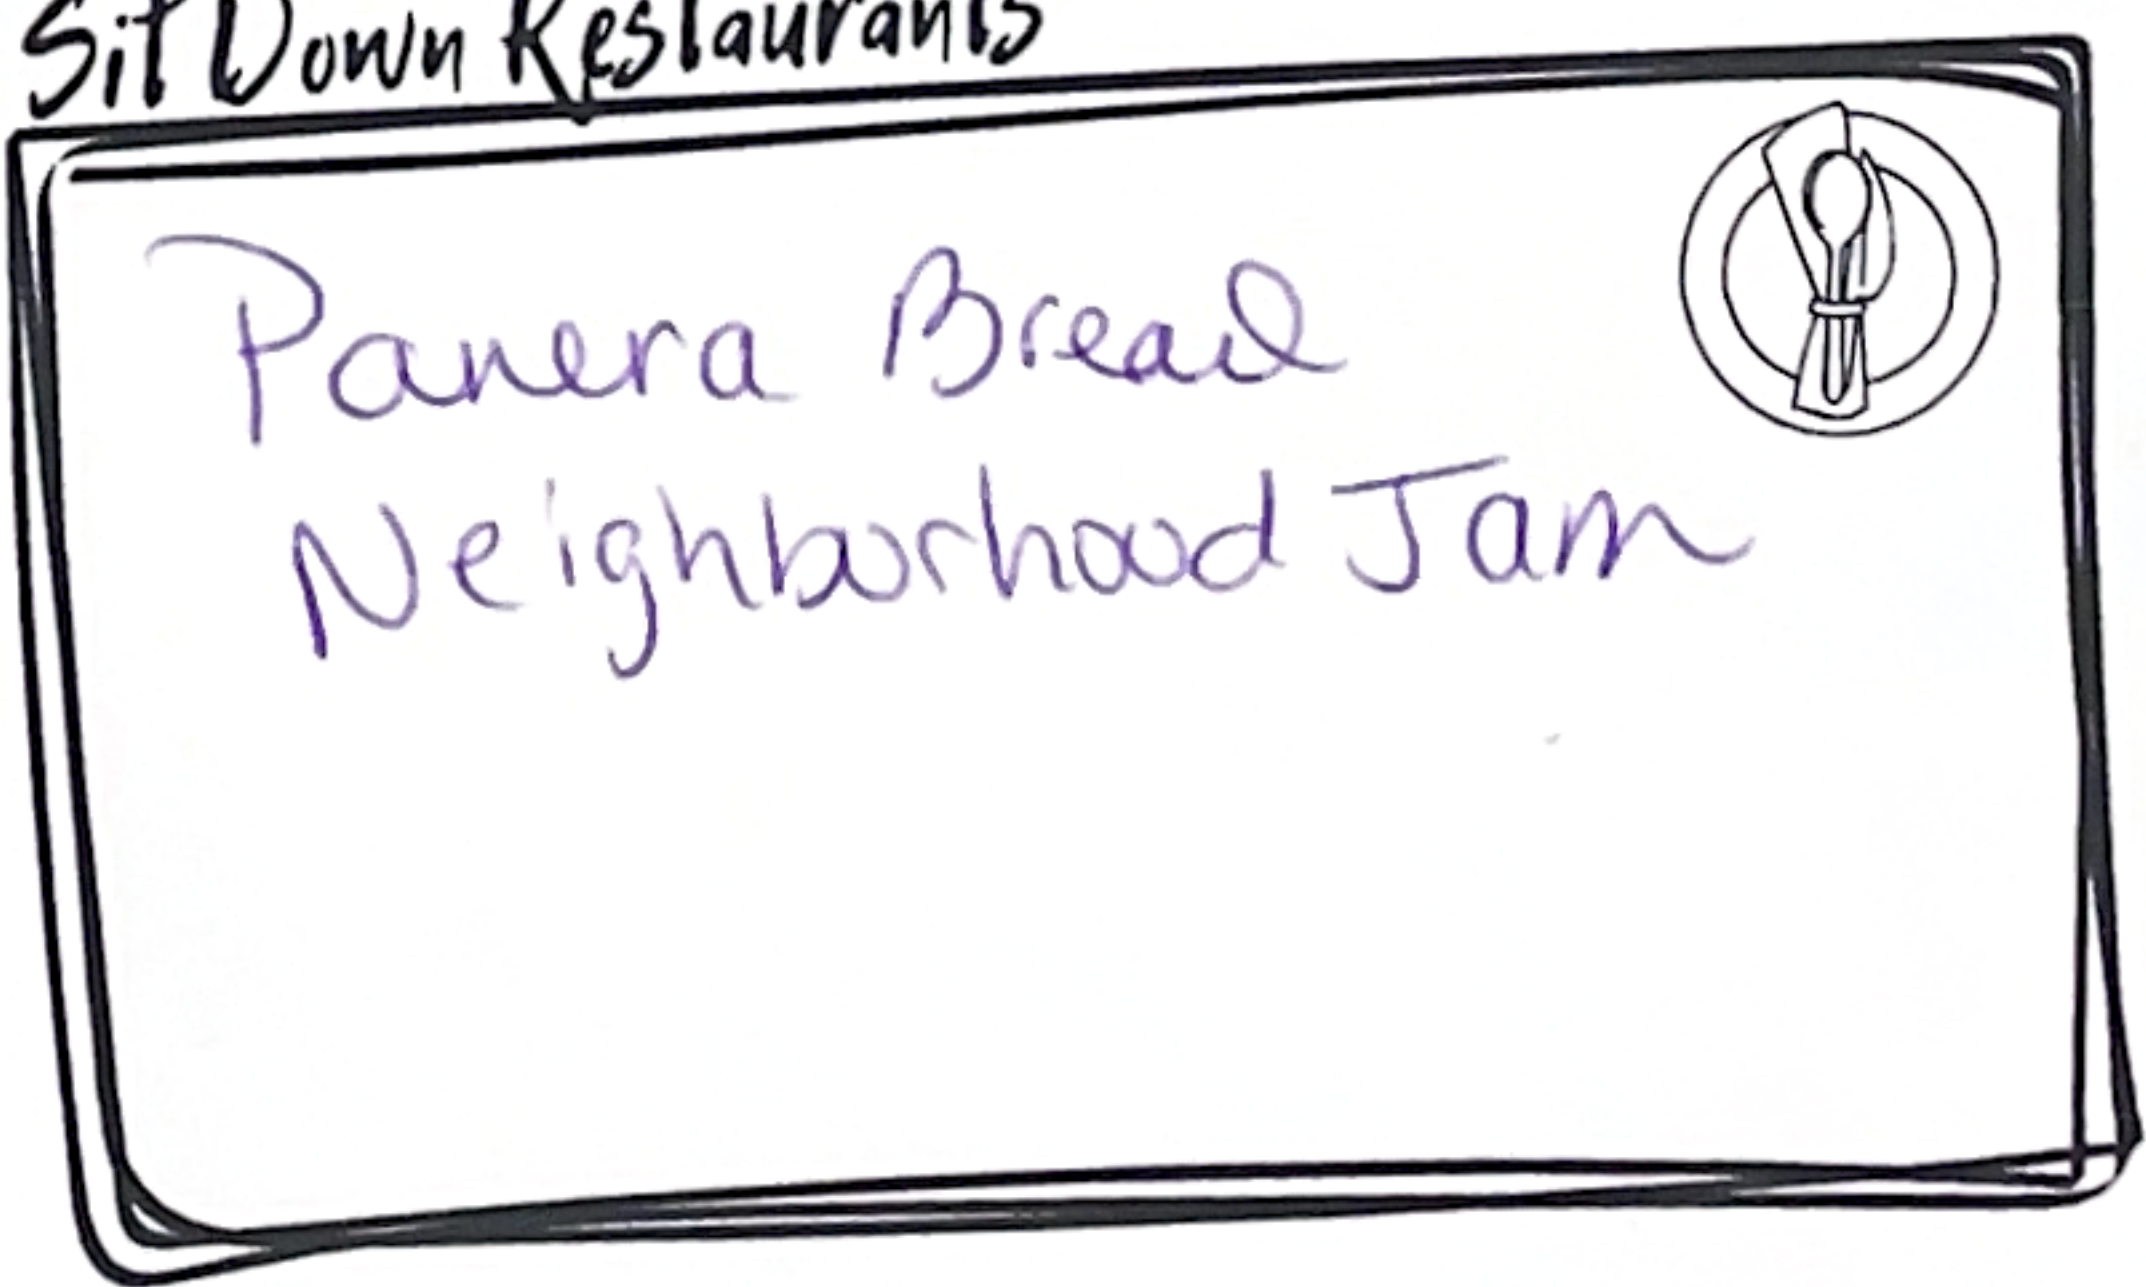 Sit Down Restaurants
Panera Bread
Neighborhood Jam